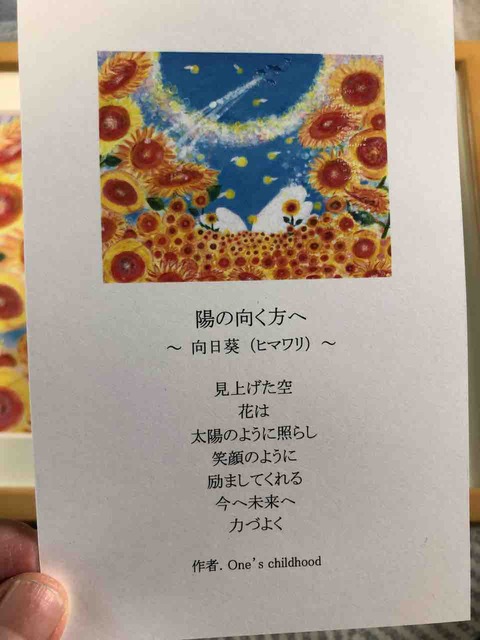 陽の向く方へ
～ 向日葵（ヒマワリ）～
見上げた空
花は
太陽のように照らし
笑顔のように
励ましてくれる
今へ未来へ
力づよく
作者. One's childhood